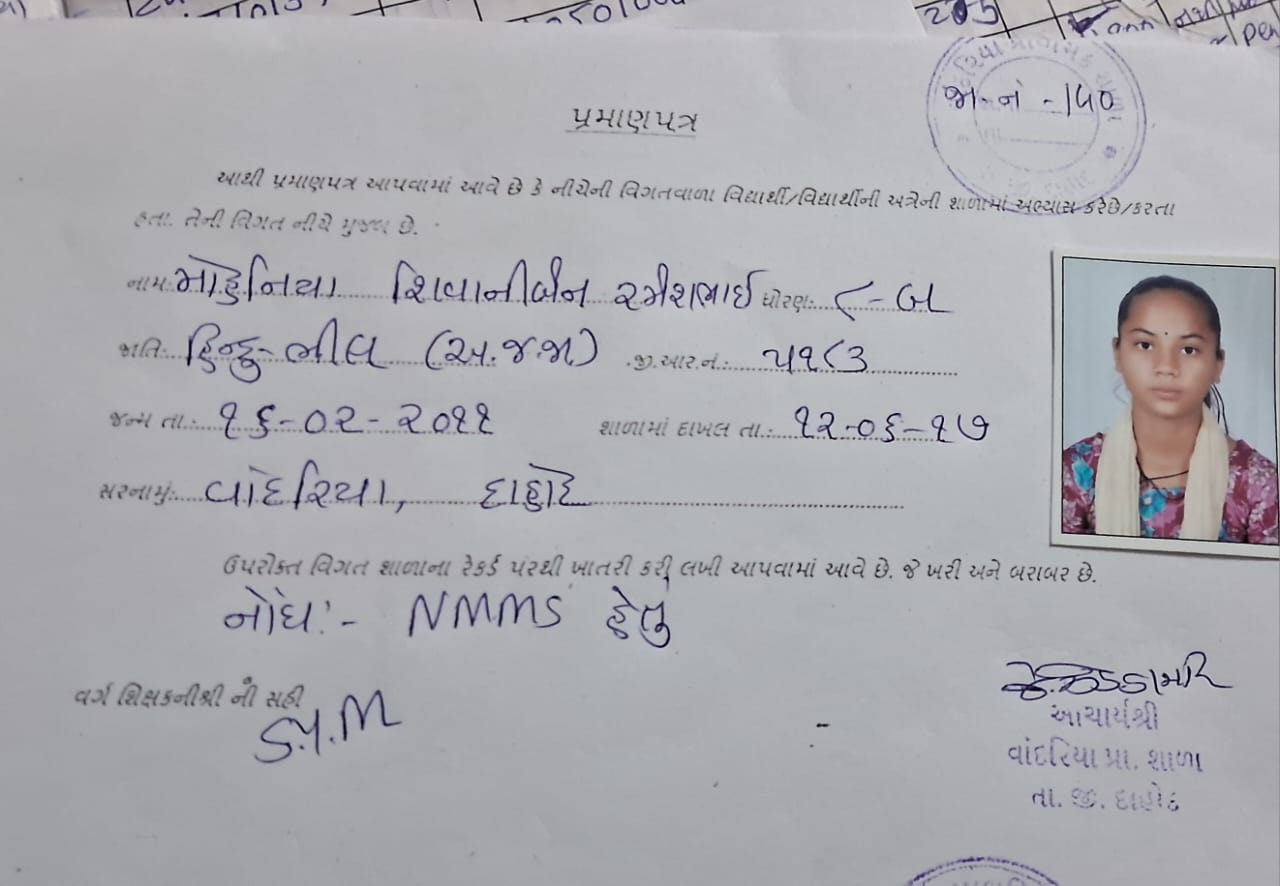 જા-નં - ૧૫૦
પ્રમાણપત્ર
આથી પ્રમાણપત્ર આપવામાં આવે છે કે નીચેની વિગતવાળા વિદ્યાર્થી/વિદ્યાર્થીની અત્રેની શાળામાં અભ્યાસ કરેછે/કરતા
હતા. તેની વિગત નીચે મુજબ છે.
નામ: મોહનિયા શિવાનીબેન રમેશભાઈ ધોરણ: ૮-બ
જાતિ: હિન્દુ-ભીલ (અ.જ.જા) .જી.આર.નં.: ૫૧૮૩
જન્મ તા.: ૧૬-૦૨-૨૦૧૧ શાળામાં દાખલ તા.: ૧૨-૦૬-૧૭
સરનામું: વાંદરિયા, દાહોદ
ઉપરોક્ત વિગત શાળાના રેકર્ડ પરથી ખાતરી કરી લખી આપવામાં આવે છે. જે ખરી અને બરાબર છે.
નોંધ:- NMMS હેતુ
વર્ગ શિક્ષકનીશ્રી ની સહી
આચાર્યશ્રી
વાંદરિયા પ્રા. શાળા
તા. જી. દાહોદ